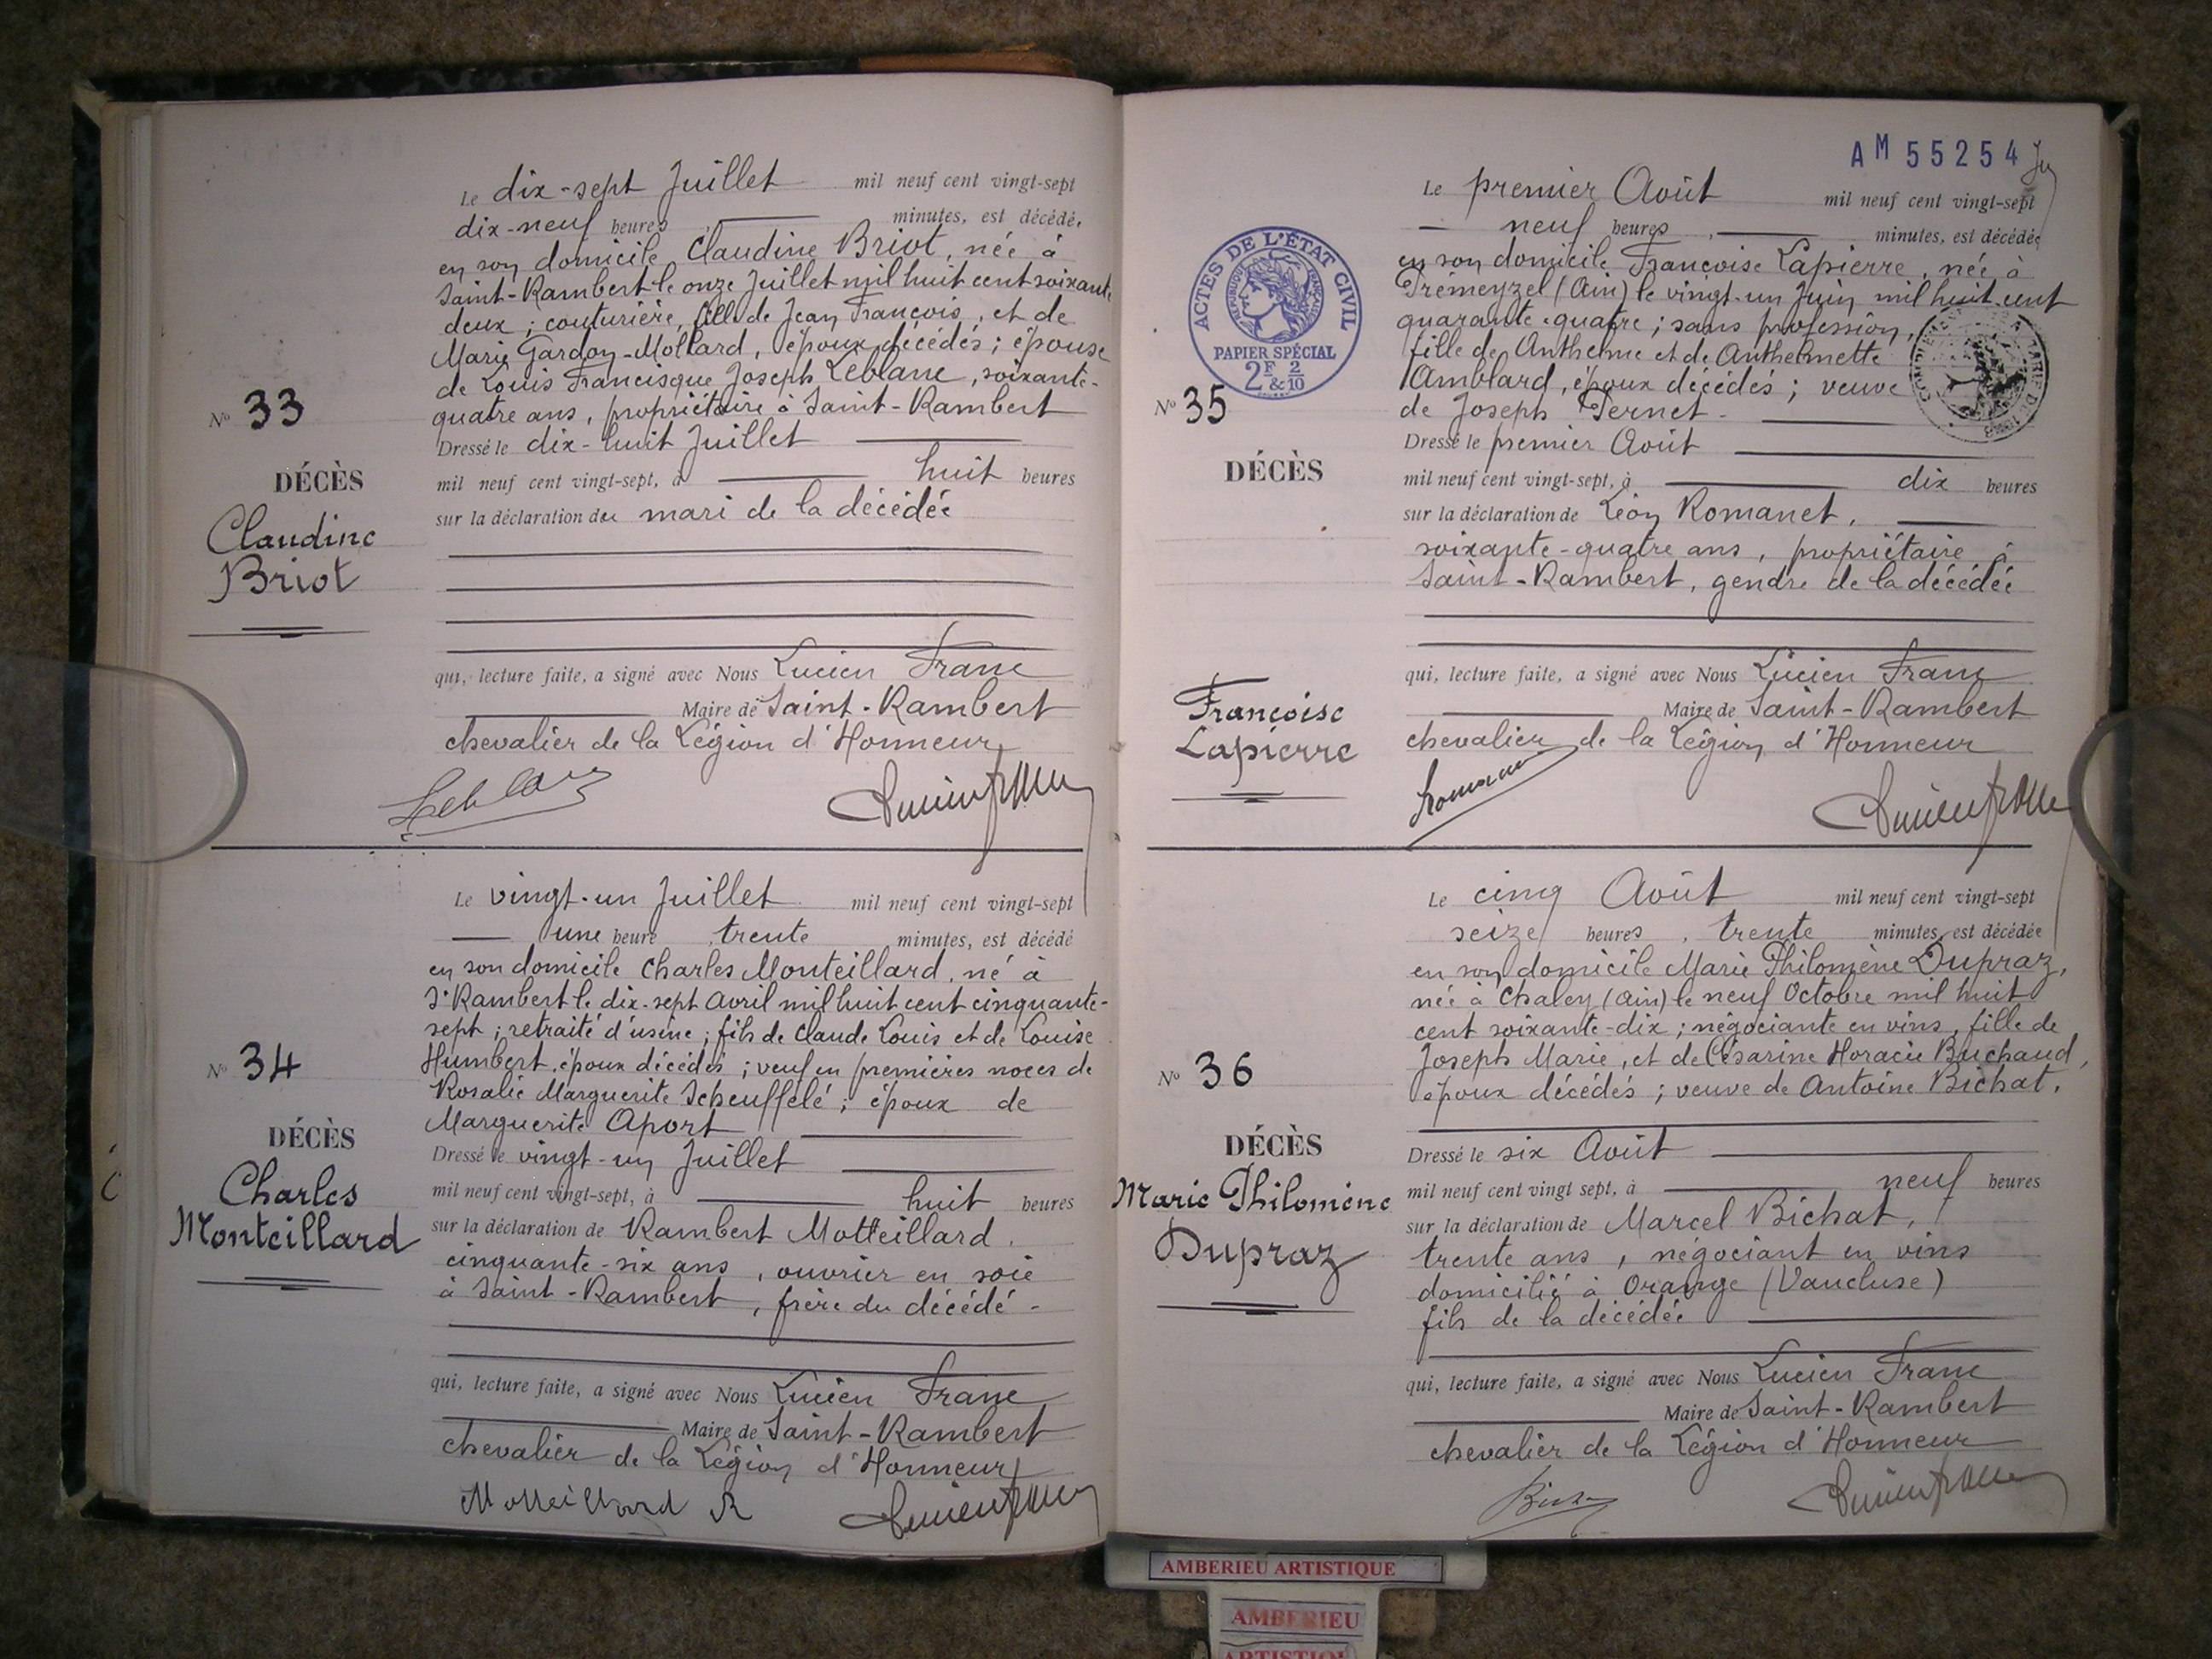 Le dix-sept Juillet mil neuf cent vingt-sept
dix-neuf heures, minutes, est décédée
en son domicile Claudine Briot, née à
Saint-Rambert le onze Juillet mil huit cent soixante
deux ; couturière, fille de Jean François, et de
Marie Gardon-Mollard, époux décédés ; épouse
de Louis Francisque Joseph Leblanc, soixante-
quatre ans, propriétaire à Saint-Rambert
No 33
Dressé le dix-huit Juillet
DÉCÈS
mil neuf cent vingt-sept, à huit heures
Claudine
Briot
sur la déclaration du mari de la décédée
qui, lecture faite, a signé avec Nous Lucien Franc
Maire de Saint-Rambert
chevalier de la Légion d'Honneur
Leblanc
Lucien Franc
Le vingt-un Juillet mil neuf cent vingt-sept
une heure, trente minutes, est décédé
en son domicile Charles Monteillard, né à
St Rambert le dix-sept Avril mil huit cent cinquante-
sept ; retraité d'usine ; fils de Claude Louis et de Louise
Humbert, époux décédés ; veuf en premières noces de
Rosalie Marguerite Scheufflelé ; époux de
Marguerite Aport
No 34
DÉCÈS
Charles
Monteillard
Dressé le vingt-un Juillet
mil neuf cent vingt-sept, à huit heures
sur la déclaration de Rambert Motteillard,
cinquante-six ans, ouvrier en soie
à Saint-Rambert, frère du décédé -
qui, lecture faite, a signé avec Nous Lucien Franc
Maire de Saint-Rambert
chevalier de la Légion d'Honneur
Motteillard R
Lucien Franc
AM 55254
ACTES DE L'ÉTAT CIVIL
RÉPUBLIQUE FRANÇAISE
PAPIER SPÉCIAL
2F & 2/10
Le premier Août mil neuf cent vingt-sept
neuf heures, minutes, est décédée
en son domicile Françoise Lapierre, née à
Trémeyzel (Ain) le vingt-un Juin mil huit cent
quarante-quatre ; sans profession,
fille de Anthelme et de Anthelmette
Amblard, époux décédés ; veuve
de Joseph Pernet -
No 35
DÉCÈS
Françoise
Lapierre
Dressé le premier Août
mil neuf cent vingt-sept, à dix heures
sur la déclaration de Léon Romanet,
soixante-quatre ans, propriétaire à
Saint-Rambert, gendre de la décédée
qui, lecture faite, a signé avec Nous Lucien Franc
Maire de Saint-Rambert
chevalier de la Légion d'Honneur
Romanet
Lucien Franc
Le cinq Août mil neuf cent vingt-sept
seize heures, trente minutes, est décédée
en son domicile Marie Philomène Dupraz,
née à Chaley (Ain) le neuf Octobre mil huit
cent soixante-dix ; négociante en vins, fille de
Joseph Marie, et de Césarine Horacie Buchaud,
époux décédés ; veuve de Antoine Bichat.
No 36
DÉCÈS
Marie Philomène
Dupraz
Dressé le six Août
mil neuf cent vingt sept, à neuf heures
sur la déclaration de Marcel Bichat,
trente ans, négociant en vins
domicilié à Orange (Vaucluse)
fils de la décédée
qui, lecture faite, a signé avec Nous Lucien Franc
Maire de Saint-Rambert
chevalier de la Légion d'Honneur
Lucien Franc
AMBERIEU ARTISTIQUE
AMBERIEU
ARTISTIQUE